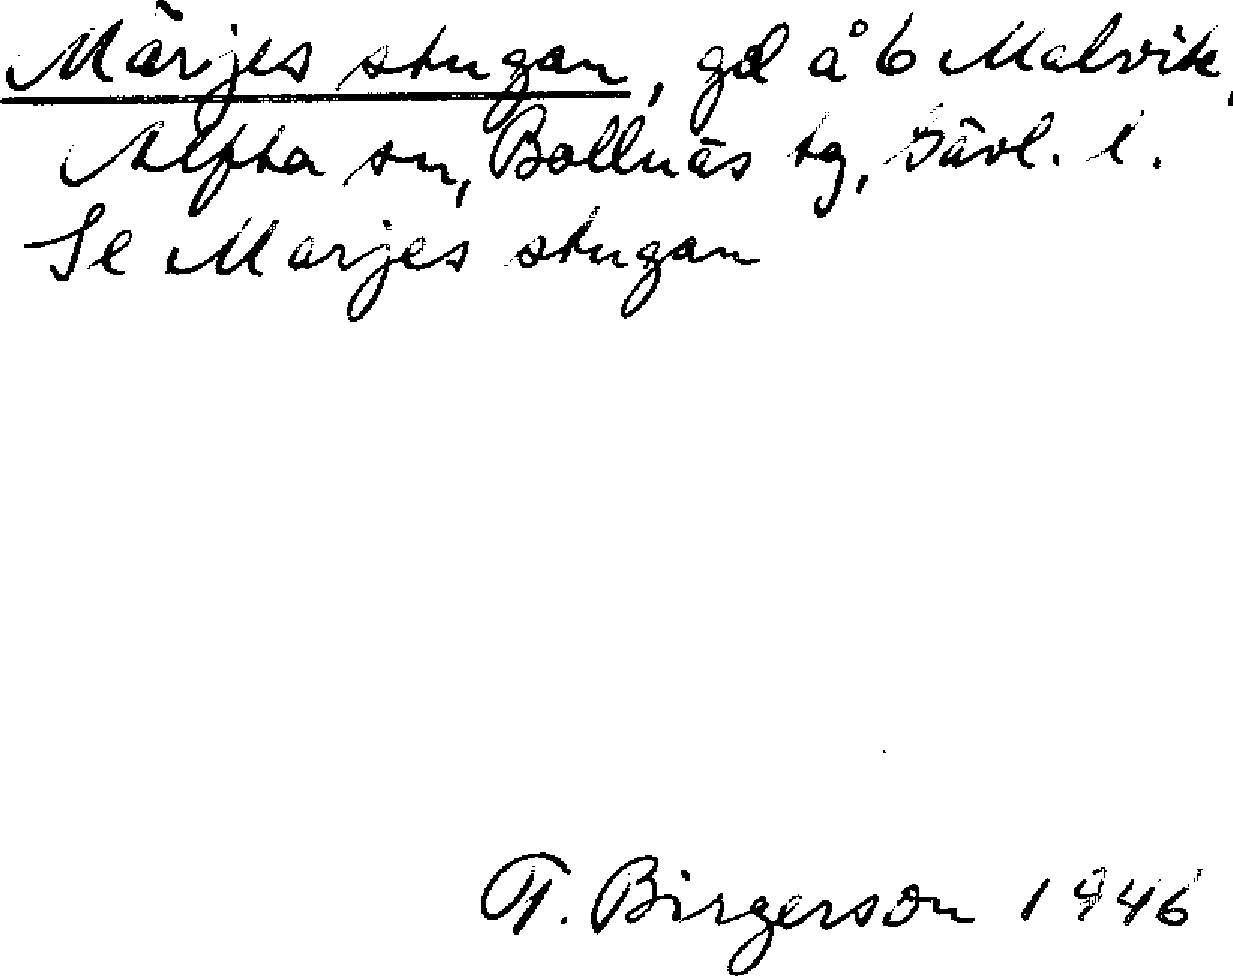 Märjes stugan, gd å 6 Malvik,
Alfta sn, Bollnäs tg, Gävl. l.
Se Marjes stugan
T. Birgerson 1946